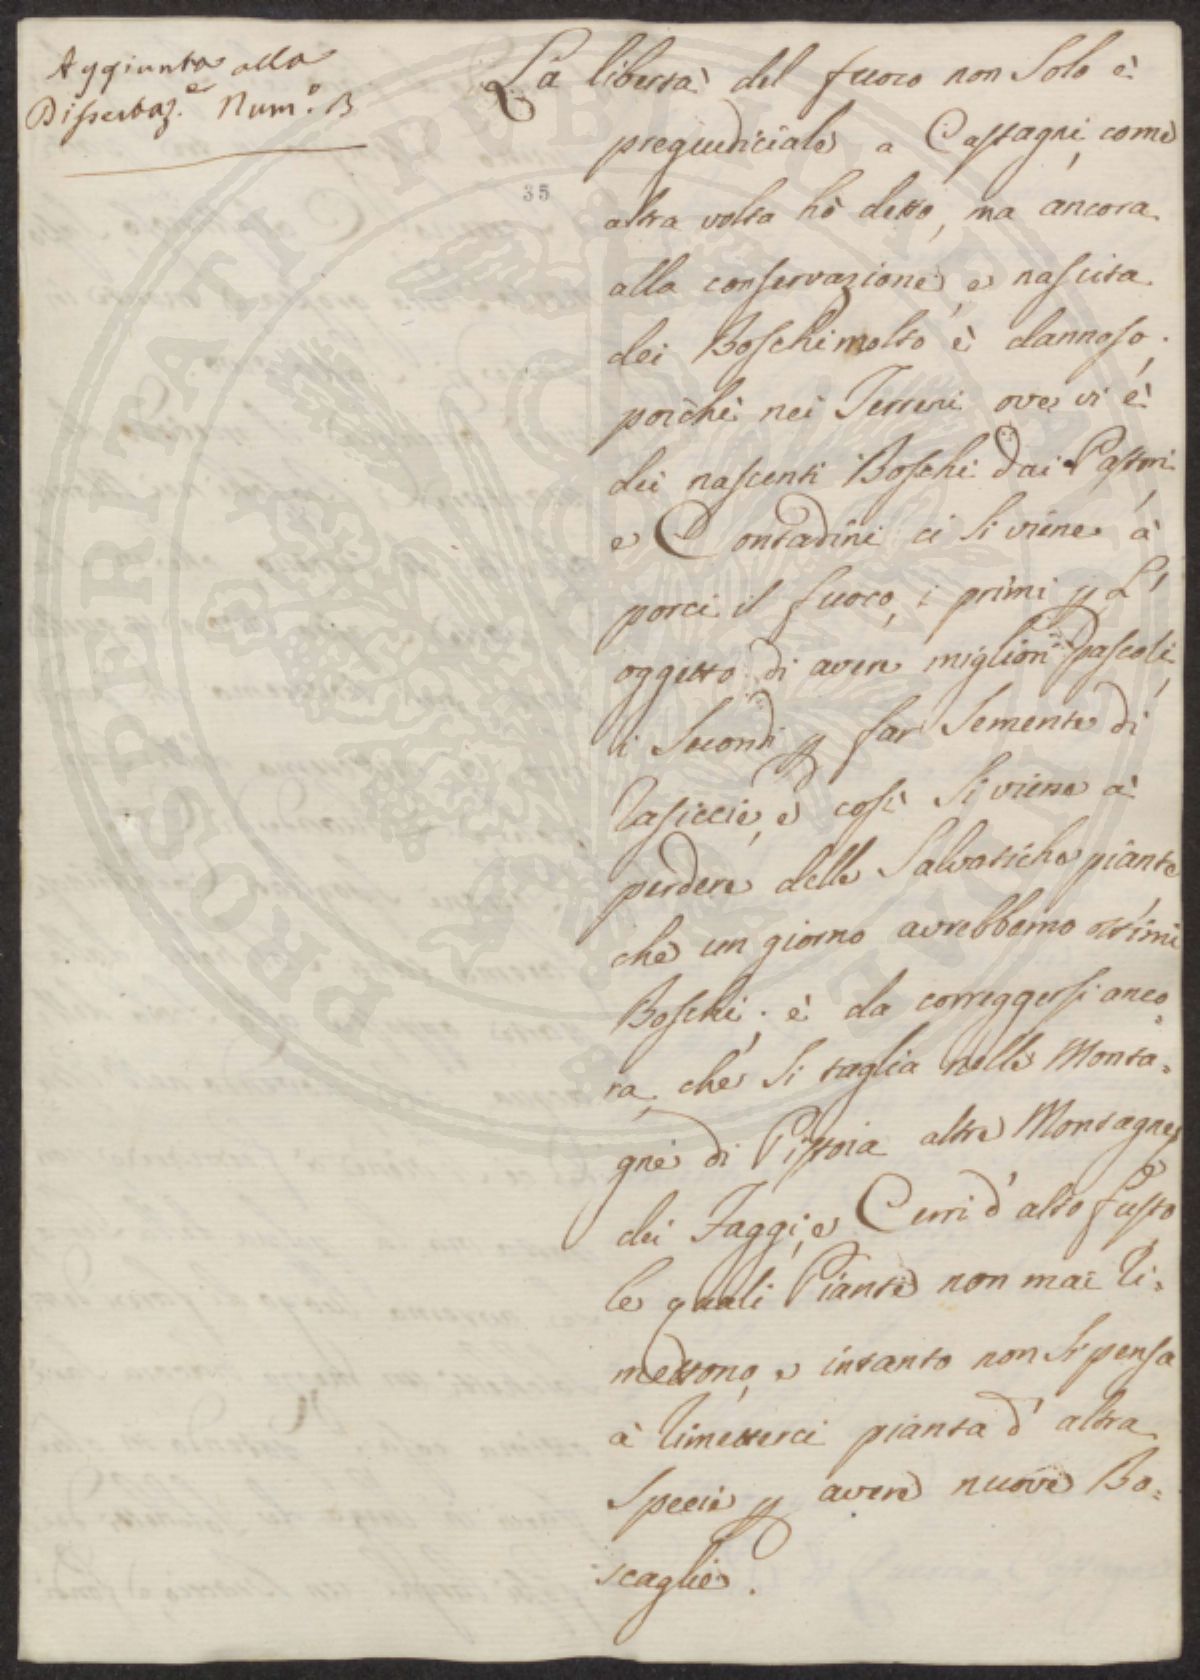 Aggiunta alla
Dissertaz.e Num.o B
35
La libertà del fuoco non Solo è
pregiudiciale a Castagni, come
altra volta hò detto, ma ancora
alla conservazione, e nascita
dei Boschi molto è dannoso.
poichè nei Terreni ove vi è
dei nascenti Boschi dai Pastori
e Contadini ci si viene à
porci il fuoco, i primi p L'
oggetto di aver migliori pascoli,
i Secondi p far Semente di
e così si viene à
perdere delle Salvatiche piante
che un giorno avrebbamo ottimi
Boschi. è da correggersi anco=
ra, che si taglia nelle Monta=
gne di Pistoia altre Montagne,
dei Faggi, e Cerri d'alto fusto
le quali Piante non mai ri=
mettono, e intanto non si pensa
à rimetterci pianta d'altra
Specie p avere nuove Bo=
scaglie.
PROSPERITATI PUBLICAE